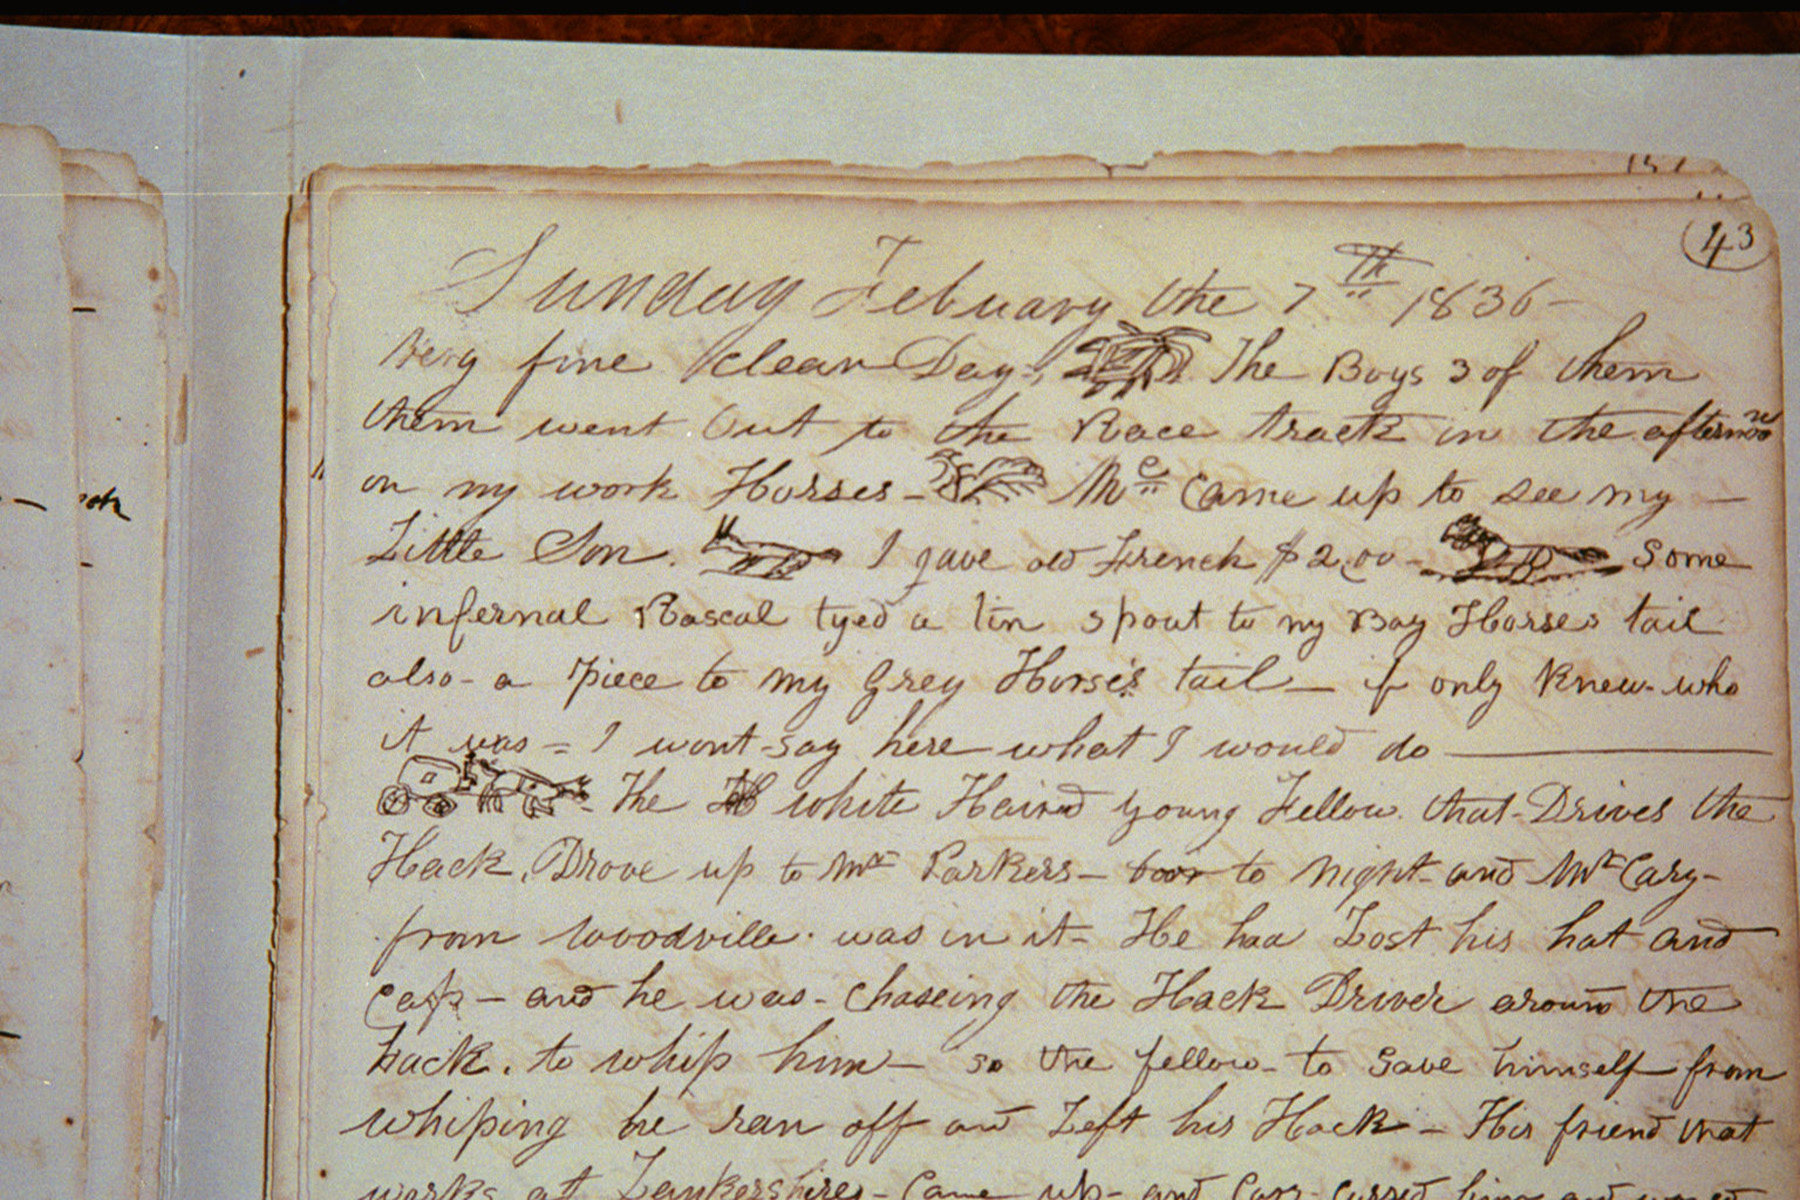 43
Sunday Febuary the 7th 1836 -
Very fine clear Day -, The Boys 3 of them
them went Out to the Race track in the afternoon
on my work Horses - Mc Came up to see my -
Little Son. I gave old French $2,00 - Some
infernal Rascal tyed a tin spout to my Bay Horses tail
also - a piece to my Grey Horse's tail - if only Knew - who
it was = I wont - say here what I would do
- The white Haired young Fellow that - Drives the
Hack. Drove up to Mr Parkers - to night - and Mr Cary -
from Woodville. was in it - He had Lost his hat and
Cap - and he was - Chaseing the Hack Driver around the
hack. to whip him - so the fellow - to Save himself from
whiping he ran off and Left his Hack - His friend that
works at - Came up - and Cary - cursed him and